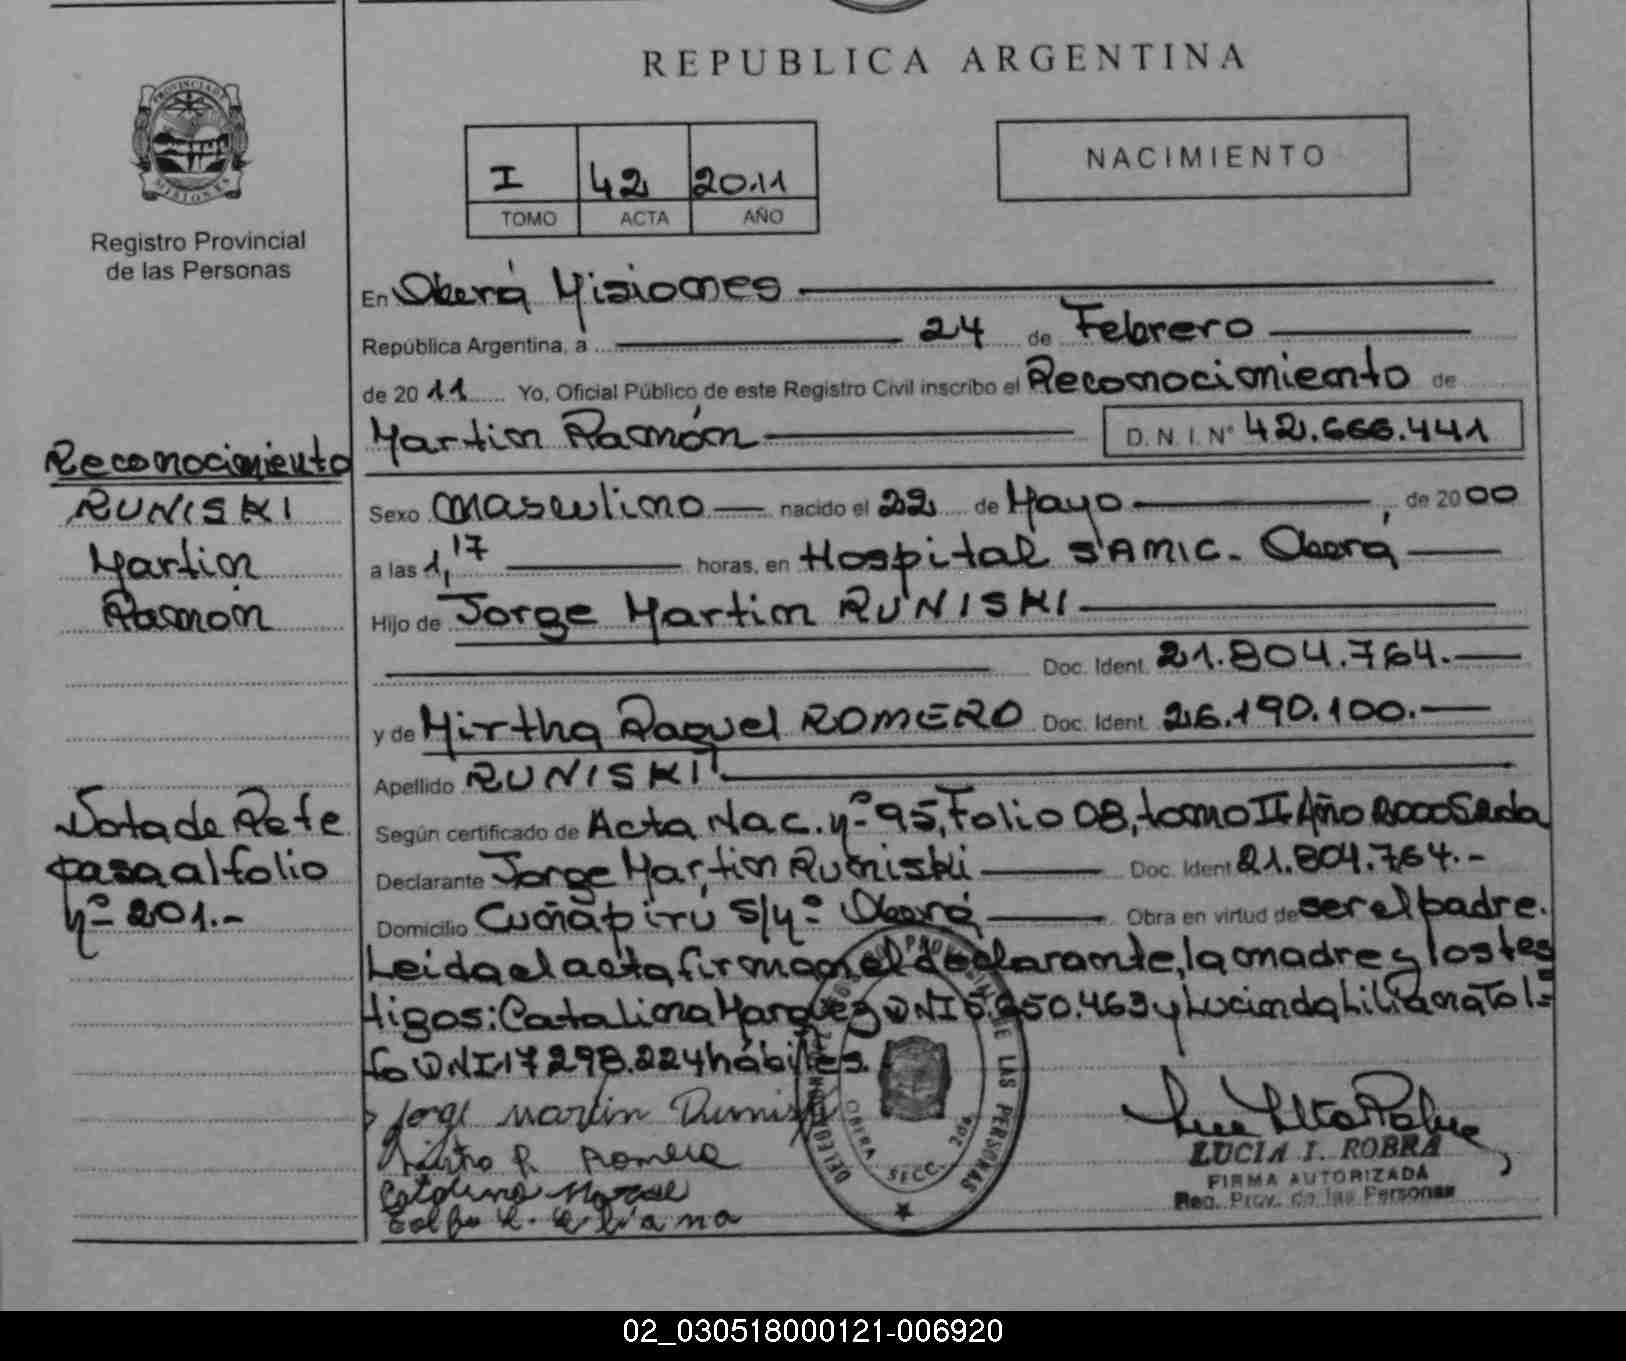 REPUBLICA ARGENTINA
PROVINCIA DE MISIONES
Registro Provincial
de las Personas
I 42 2011
TOMO ACTA AÑO
NACIMIENTO
En Oberá Misiones
República Argentina, a 24 de Febrero
de 2011 Yo, Oficial Público de este Registro Civil inscribo el Reconocimiento de
Martin Ramón D.N.I. N° 42.666.441
Sexo masculino nacido el 22 de Mayo de 2000
a las 1,17 horas, en Hospital SAMIC. Oberá
Hijo de Jorge Martin RUNISKI
Doc. Ident. 21.804.764.-
y de Mirtha Raquel ROMERO Doc. Ident. 26.190.100.-
Apellido RUNISKI
Según certificado de Acta Nac. Nº 95, Folio 08, tomo II Año 2000 S2da
Declarante Jorge Martin Runiski Doc. Ident 21.804.764.-
Domicilio Cuñapirú S/Nº Oberá Obra en virtud de ser el padre.
Leida el acta firman el declarante, la madre y los tes
tigos: Catalina Marquez DNI 5.950.463 y Lucinda Liliana Tol=
fo DNI 17298.224 hábiles.
Jorge Martin Runiski
R. Romero
Catalina
Reconocimiento
RUNISKI
Martin
Ramón
Nota de Refe
pasa al folio
Nº 201.-
DELEGACION PROVINCIAL DE LAS PERSONAS
OBERA SECC. 2da
LUCIA I. ROBRA
FIRMA AUTORIZADA
Reg. Prov. de las Personas
02_030518000121-006920